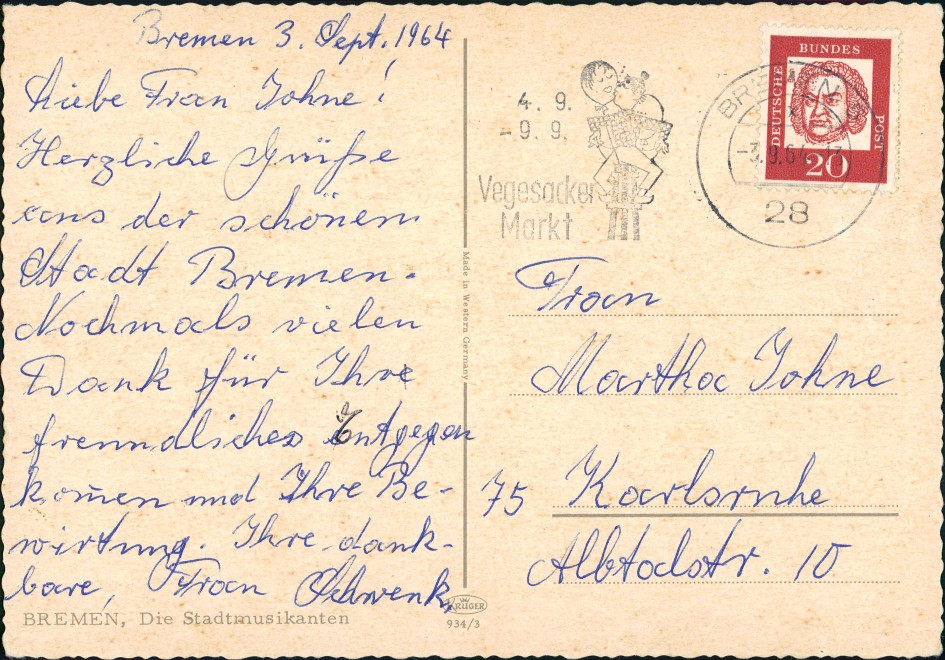 Bremen 3. Sept. 1964
Liebe Frau Johne!
Herzliche Grüße
aus der schönen
Stadt Bremen.
Nochmals vielen
Dank für Ihre
freundliches Entgegen
kom̄en und Ihre Be-
wirtung. Ihre dank-
bare, Frau Schwenk,
BREMEN, Die Stadtmusikanten
Made in Western Germany
KRÜGER
934/3
4. 9.
- 9. 9.
Vegesacker
Markt
BREMEN
-3.9.64
28
DEUTSCHE
BUNDES
POST
20
Frau
Martha Johne
75 Karlsruhe
Albtalstr. 10